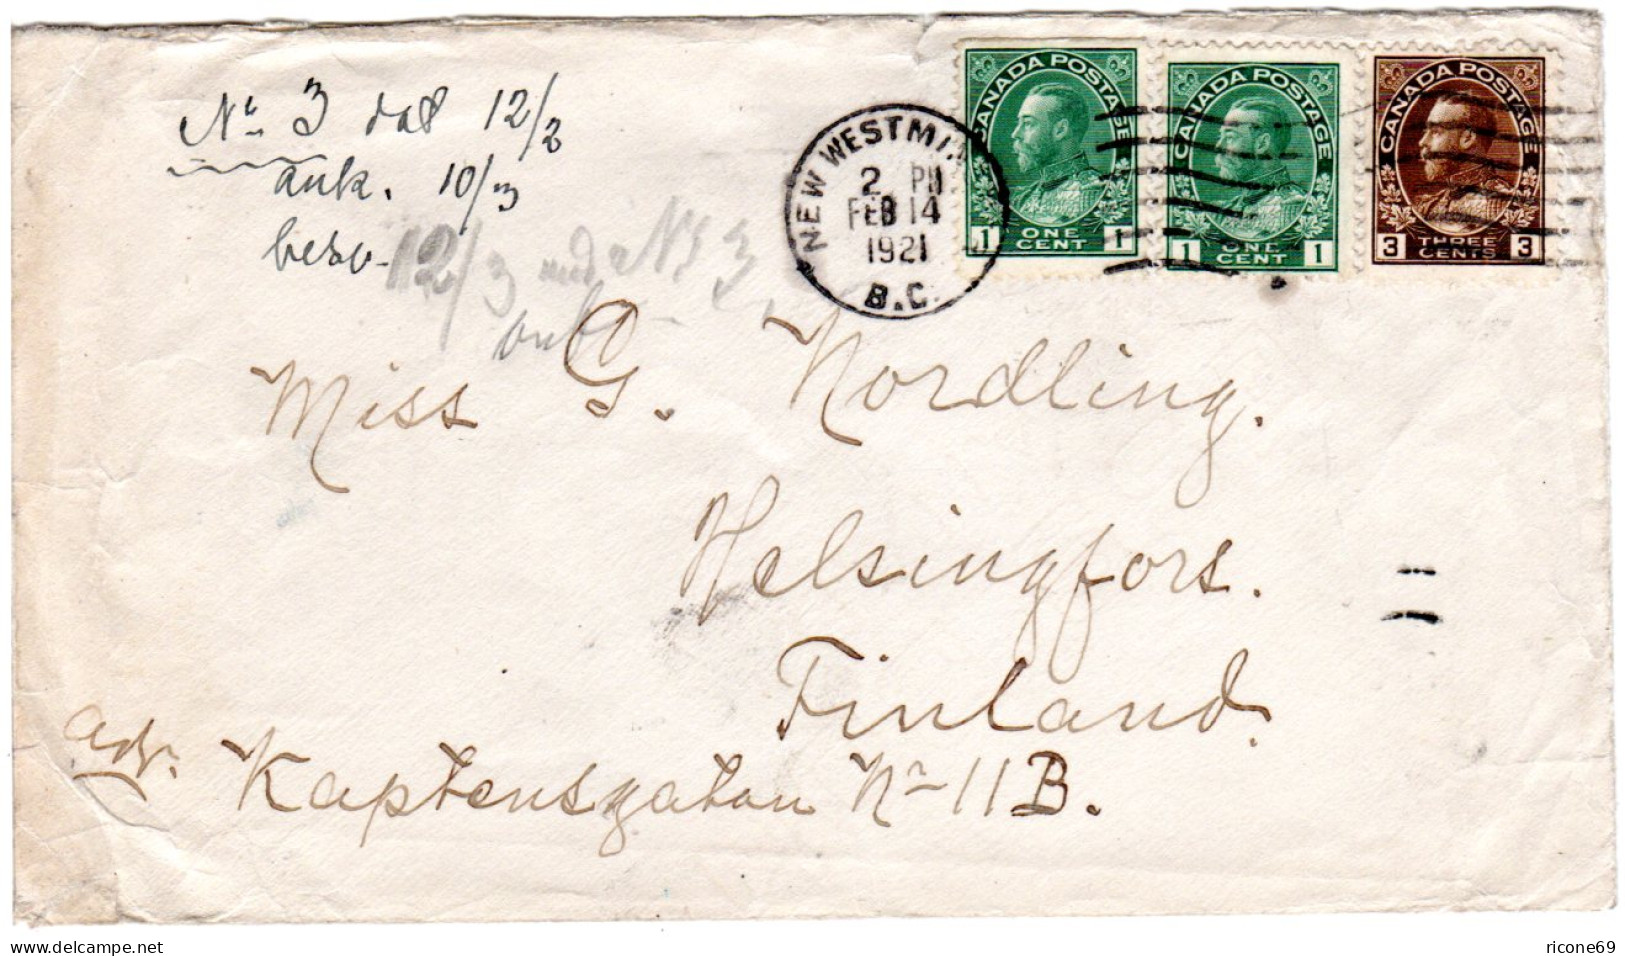 Nr 3 dat 12/2
ank. 10/3
besv. 12/3 med Nr 3
CANADA POSTAGE
1 ONE CENT 1
CANADA POSTAGE
1 ONE CENT 1
CANADA POSTAGE
3 THREE CENTS 3
NEW WESTMIN
2 PM
FEB 14
1921
B.C.
Miss G. Nordling.
Helsingfors.
Finland.
adr. Kaptensgatan Nr 11B.
delcampe.net
ricone69